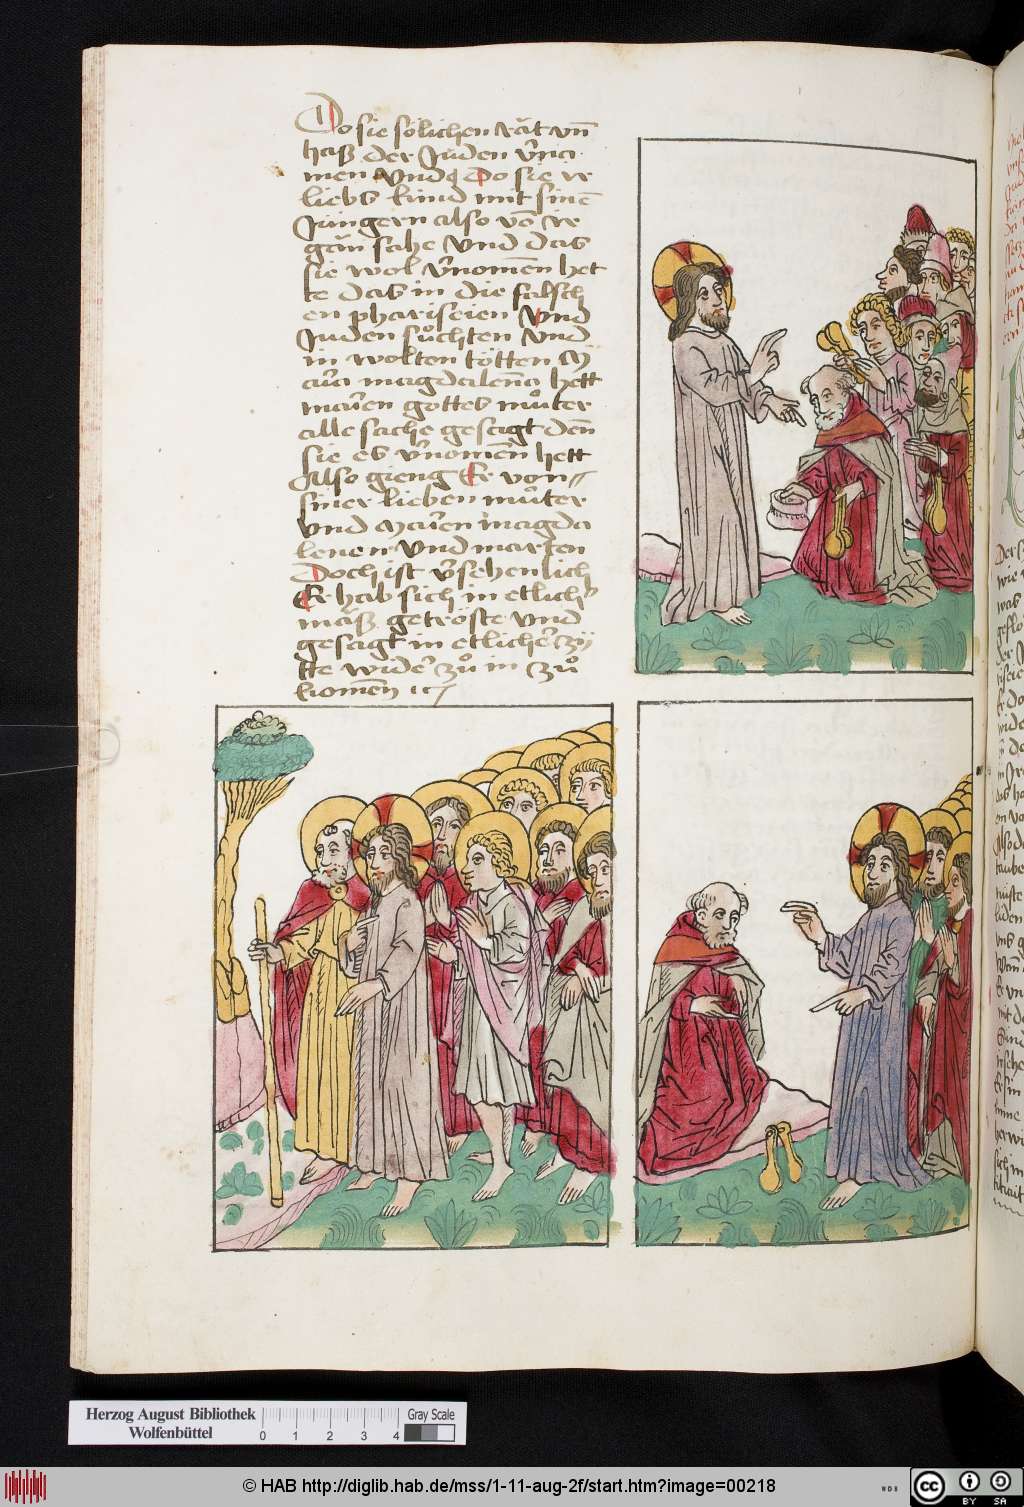 Do sie sölichen rāt vn̄
haß der Juden v̄na
men Vnd Do sie ir
liebs kind mit sinē
Jüngern also vō ir
gān sahe Vnd das
sie wol v̄nomēn het
te das in die falsch
en phariseien Vnd
Juden sůchten Vnd
in wolten tötten M
aria magdalena hett
marien gottes můter
alle sache gesagt den̄
sie es v̄nomēn hett
Also gieng Er von
siner lieben můter
Vnd Marien magda
lenen Vnd marten
Doch ist v̄sehenlich
Er hab sich in etlich
māß getröste Vnd
gesagt in etlicher zÿ
tte wider zů in zů
komēn ⁊c
Herzog August Bibliothek
Wolfenbüttel
0 1 2 3 4
Gray Scale
© HAB http://diglib.hab.de/mss/1-11-aug-2f/start.htm?image=00218
WDB
cc BY SA